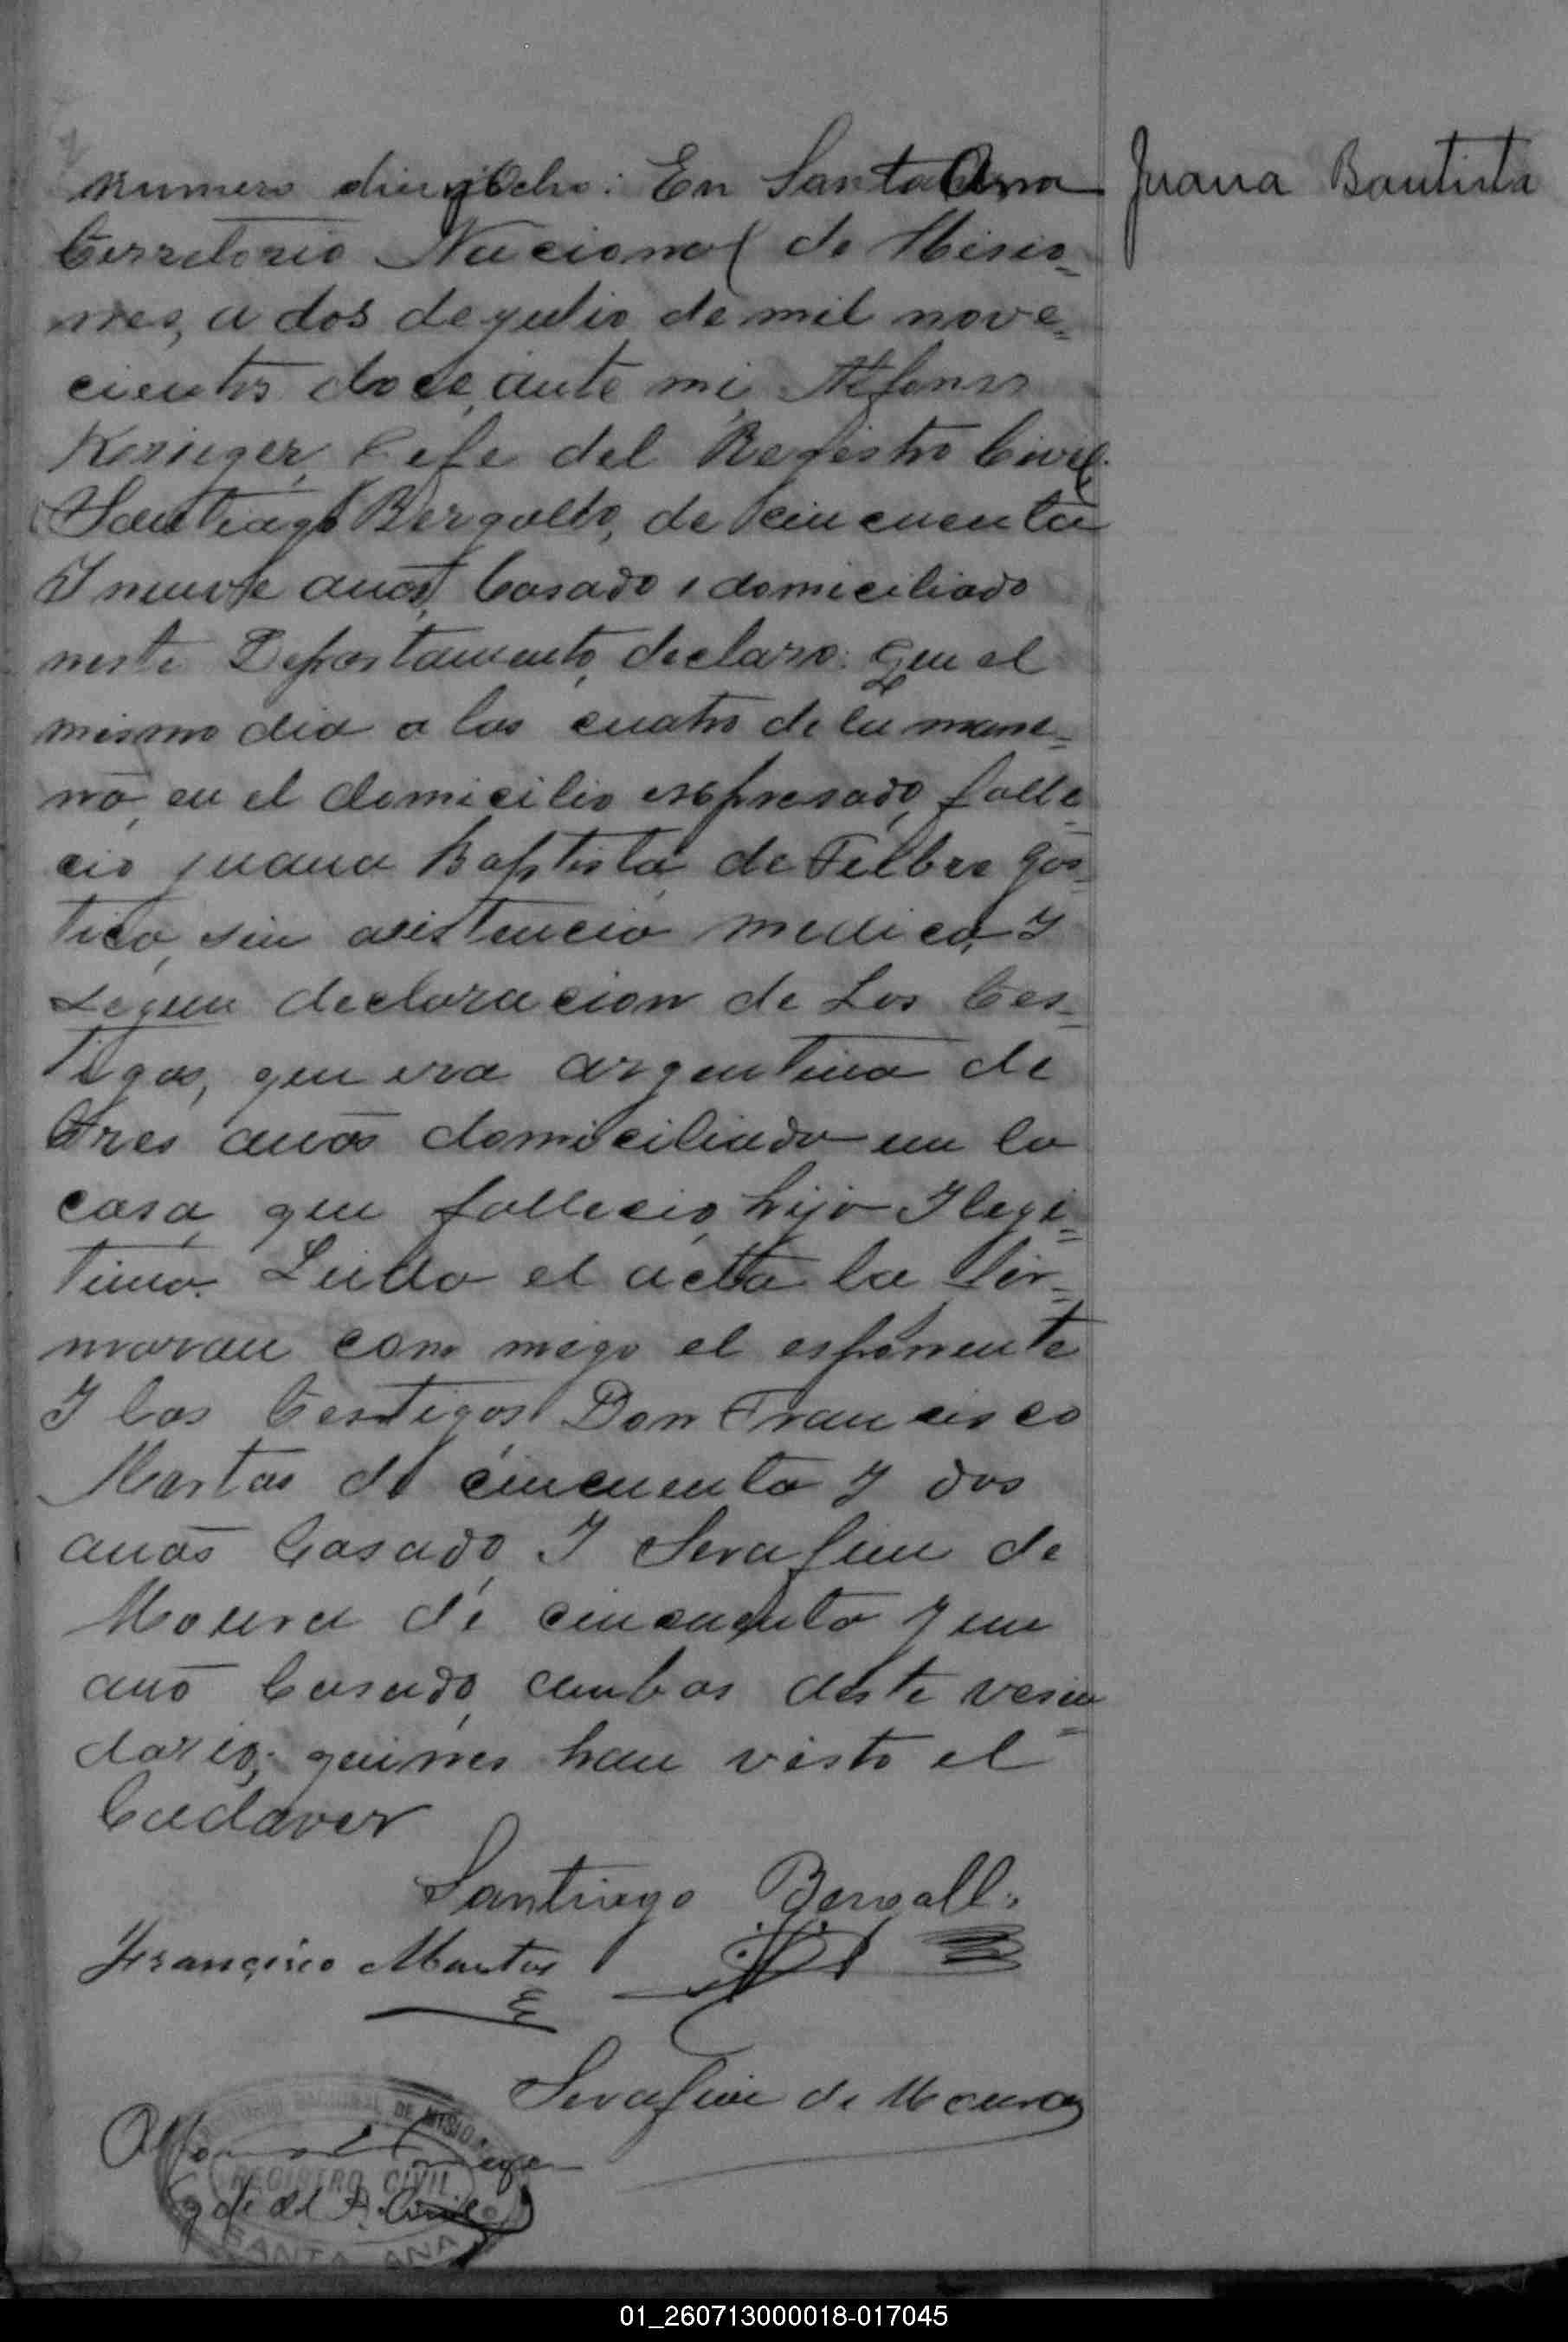 Juana Bautista
numero dieuiocho: En Santa Ana
Territorio Nacional de Misio=
nes, a dos de julio de mil nove=
cientos doce, ante mi, Alfonso
Krieger, Gefe del Registro Civil.
Santiago Bergallo, de cincuenta
I nueve anos, Casado, domiciliado
neste Departamento, declaro: Que el
mismo dia a las cuatro de la mana=
na, en el domicilio espresado, falle=
cio juana Baptista, de Fiebre gas=
tica, sin asistencia medica, I
segun declaracion de Los tes=
tigos, que era argentina de
tres anos domiciliado en la
casa que fallecio, hijo Ilegi=
timo. Leida el acta la fir=
maran com migo el esponente
I los testigos Don Francisco
Martos de cincuenta I dos
anos Casado, I Serafim de
Moura de cincuenta I un
ano Casado, ambos deste vesin=
dario; quines han visto el
Cadaver
Santiago Bergallo
Francisco Martos
Serafim de Moura
DE MISIO
REGISTRO CIVIL
SANTA ANA